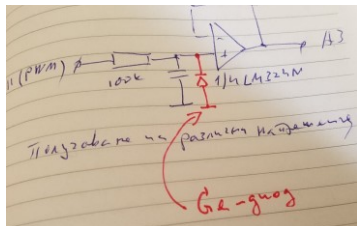 (PWM)
100k
1/4 LM324N
A3
Получаване на различни напрежения
Ge-диод